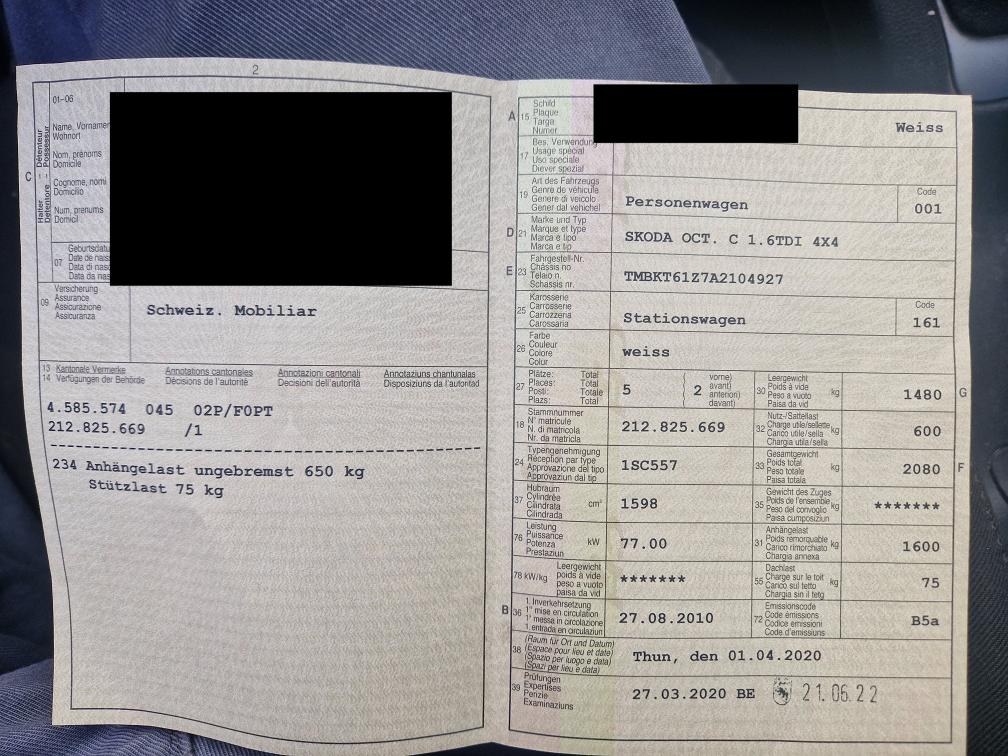 2
01-06
Détenteur Possessur
C
Halter Detentore
Name, Vornamen
Wohnort
Nom, prénoms
Domicile
Cognome, nomi
Domicilio
Num, prenums
Domicil
07
Geburtsdatu
Date de nais
Data di nasc
Data da nas
09
Versicherung
Assurance
Assicurazione
Assicuranza
Schweiz. Mobiliar
13 Kantonale Vermerke Annotations cantonales Annotazioni cantonali Annotaziuns chantunalas
14 Verfügungen der Behörde Décisions de l'autorité Decisioni dell'autorità Disposiziuns da l'autoritad
4.585.574 045 02P/F0PT
212.825.669 /1
234 Anhängelast ungebremst 650 kg
Stützlast 75 kg
A 15
Schild
Plaque
Targa
Numer
Weiss
17
Bes. Verwendung
Usage spécial
Uso speciale
Diever spezial
19
Art des Fahrzeugs
Genre de véhicule
Genere di veicolo
Gener dal vehichel
Personenwagen
Code
001
D 21
Marke und Typ
Marque et type
Marca e tipo
Marca e tip
SKODA OCT. C 1.6TDI 4X4
E 23
Fahrgestell-Nr.
Châssis no
Telaio n.
Schassis nr.
TMBKT61Z7A2104927
25
Karosserie
Carrosserie
Carrozzeria
Carossaria
Stationswagen
Code
161
26
Farbe
Couleur
Colore
Colur
weiss
27
Plätze: Total
Places: Total
Posti: Totale
Plazs: Total
5
2
vorne)
avant)
anteriori)
davant)
30
Leergewicht
Poids à vide
Peso a vuoto
Paisa da vid
kg
1480
G
18
Stammnummer
N° matricule
N. di matricola
Nr. da matricla
212.825.669
32
Nutz-/Sattellast
Charge utile/sellette
Carico utile/sella
Chargia utila/sella
kg
600
24
Typengenehmigung
Réception par type
Approvazione del tipo
Approvaziun dal tip
1SC557
33
Gesamtgewicht
Poids total
Peso totale
Paisa totala
kg
2080
F
37
Hubraum
Cylindrée
Cilindrata
Cilindrada
cm³
1598
35
Gewicht des Zuges
Poids de l'ensemble
Peso del convoglio
Paisa cumposiziun
kg
*******
76
Leistung
Puissance
Potenza
Prestaziun
kW
77.00
31
Anhängelast
Poids remorquable
Carico rimorchiato
Chargia annexa
kg
1600
78 kW/kg
Leergewicht
poids à vide
peso a vuoto
paisa da vid
*******
55
Dachlast
Charge sur le toit
Carico sul tetto
Chargia sin il tetg
kg
75
B 36
1. Inverkehrsetzung
1re mise en circulation
1a messa in circolazione
1. entrada en circulaziun
27.08.2010
72
Emissionscode
Code émissions
Codice emissioni
Code d'emissiuns
B5a
38
(Raum für Ort und Datum)
(Espace pour lieu et date)
(Spazio per luogo e data)
(Spazi per lieu e data)
Thun, den 01.04.2020
39
Prüfungen
Expertises
Perizie
Examinaziuns
27.03.2020 BE
21.06.22